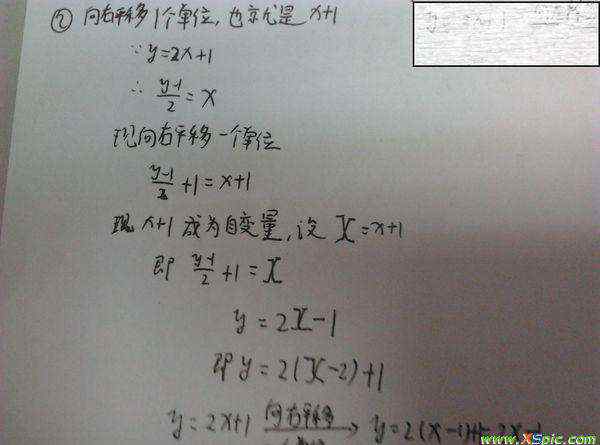 ② 向右平移1个单位,也就是x+1
∵ y=2x+1
∴ y-1/2 = x
现向右平移一个单位
y-1/2 +1 = x+1
现 x+1 成为自变量,设 X = x+1
即 y-1/2 +1 = X
y = 2X-1
即 y = 2(X-2)+1
y = 2x+1 向右平移 → y=2(x-1)+
www.XSpic.com